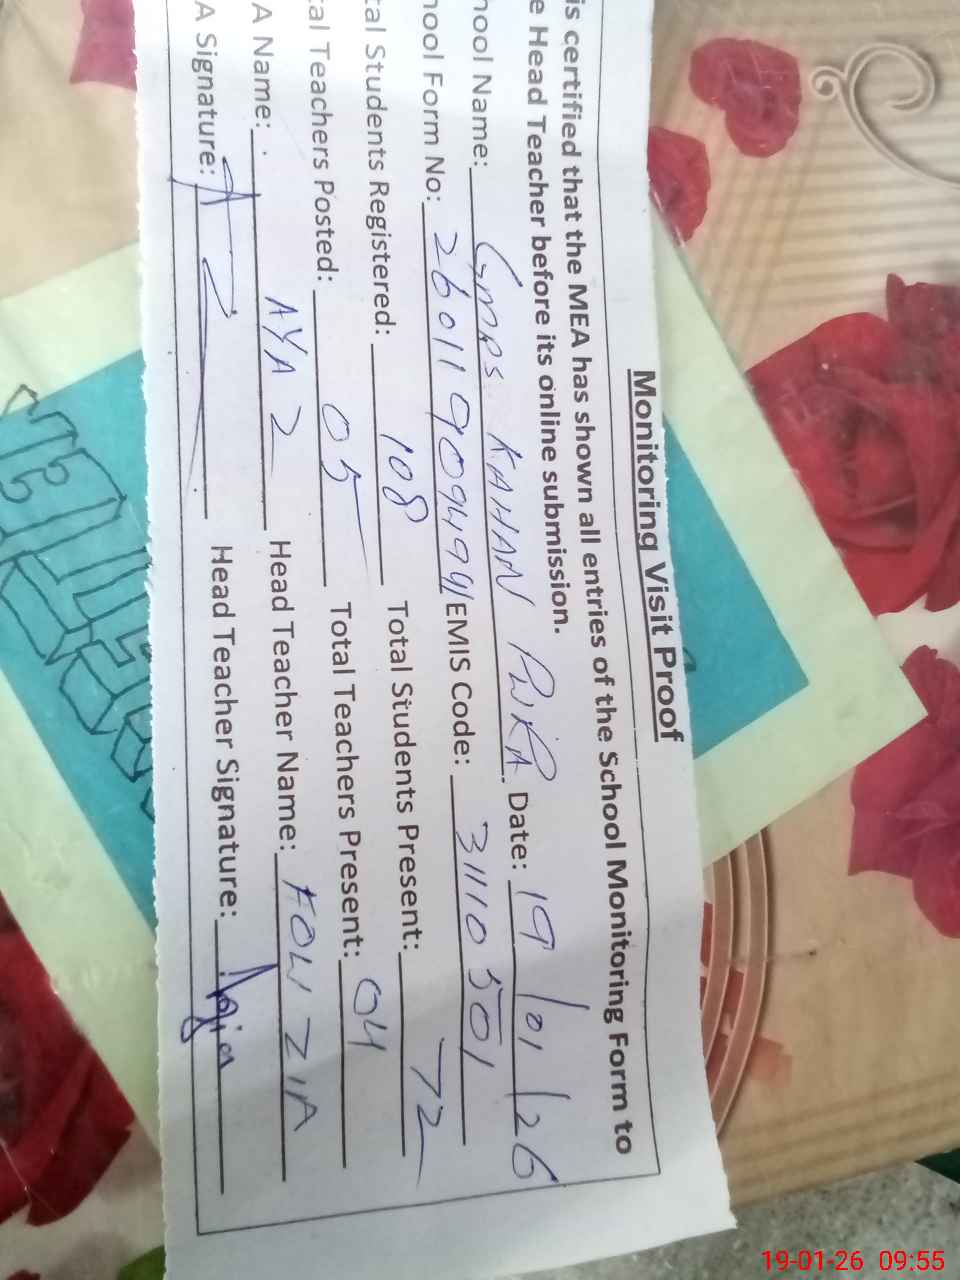 Monitoring Visit Proof
is certified that the MEA has shown all entries of the School Monitoring Form to
e Head Teacher before its online submission.
hool Name: GMPS KAHAN PURA Date: 19/01/26
hool Form No: 26011909499 EMIS Code: 31110501
tal Students Registered: 108 Total Students Present: 72
tal Teachers Posted: 05 Total Teachers Present: 04
A Name: AYAZ Head Teacher Name: ZIA
A Signature: Head Teacher Signature:
19-01-26 09:55